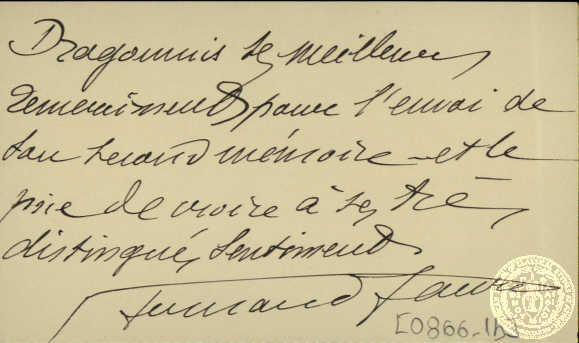 Dragoumis ses meilleurs
remerciments pour l'envoi de
son second mémoire et le
prie de croire à ses très
distingués sentiments
Fernand Faure
[0866-1b]